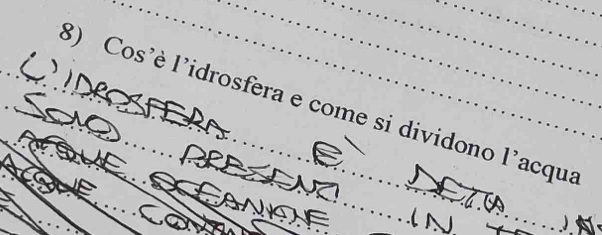 8) Cos'è l'idrosfera e come si dividono l'acqua
L'IDROSFERA E' DETTA
SONO PRESENTI IN
ACQUE OCEANICHE
ACQUE